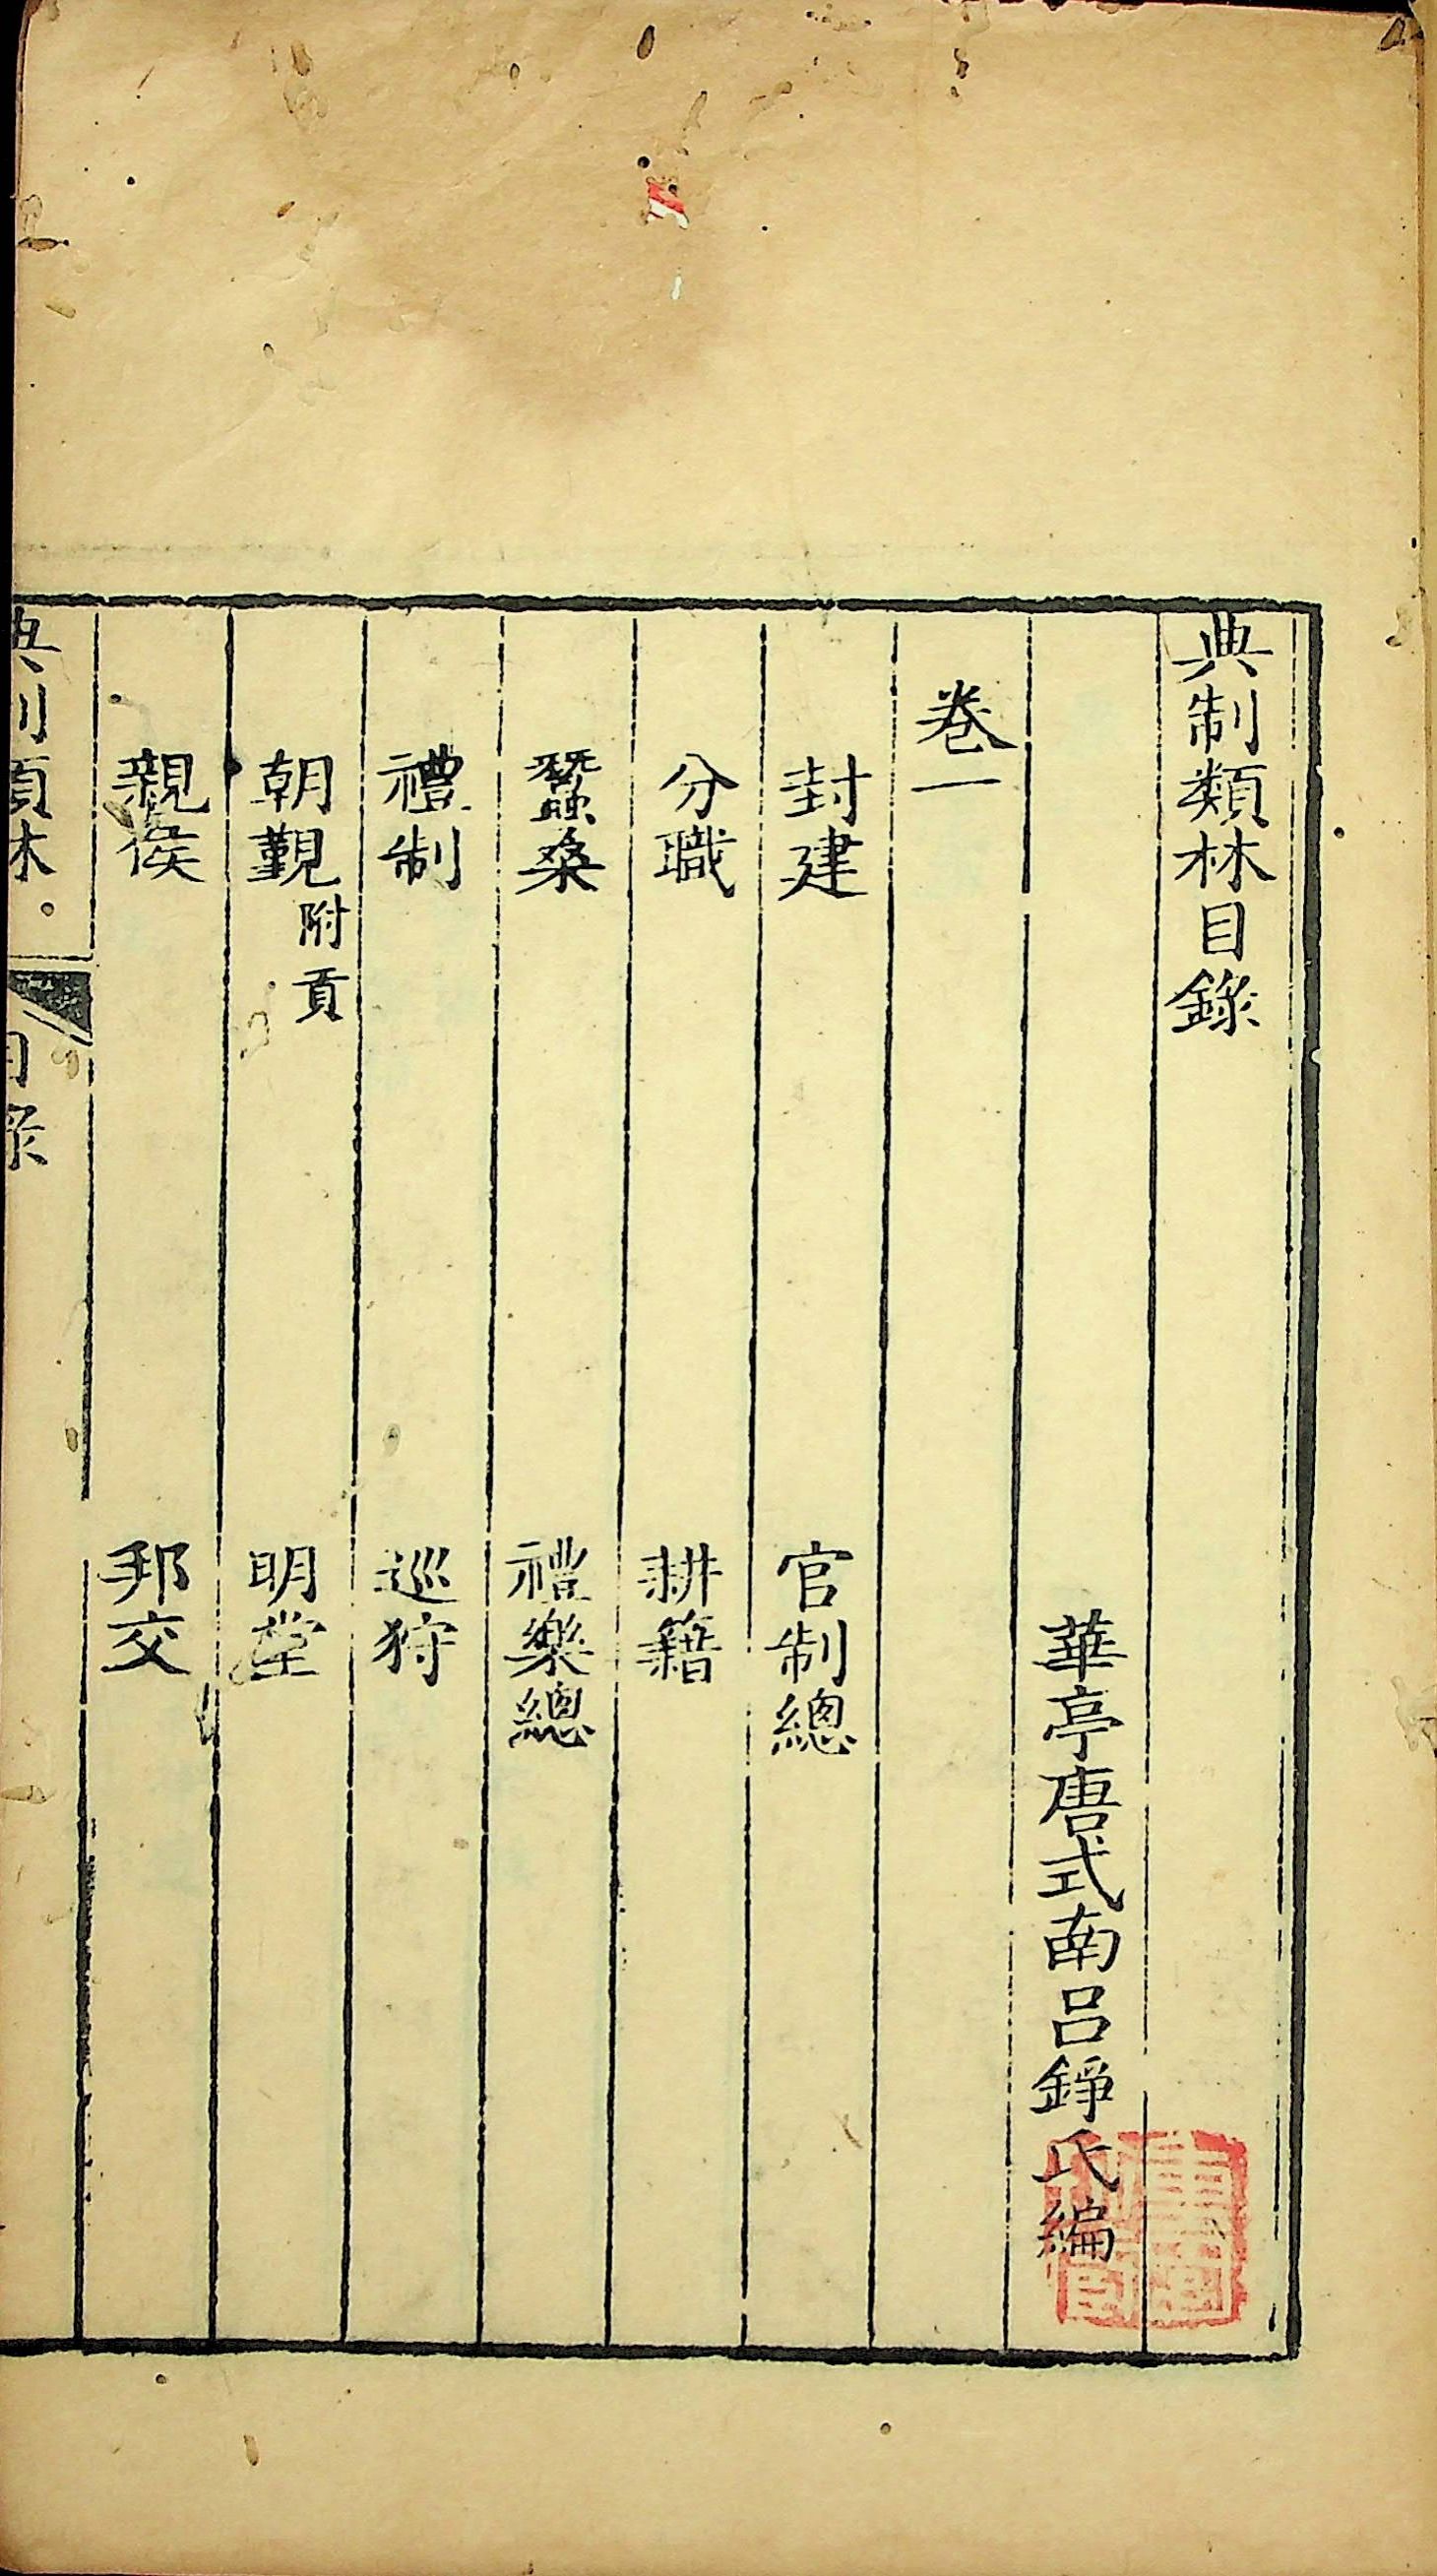 典制類林目錄
華亭唐式南呂錚氏編
卷一
封建 官制總
分職 耕籍
蠶桑 禮樂總
禮制 巡狩
朝覲附貢 明堂
親侯 邦交
典制類林 目錄